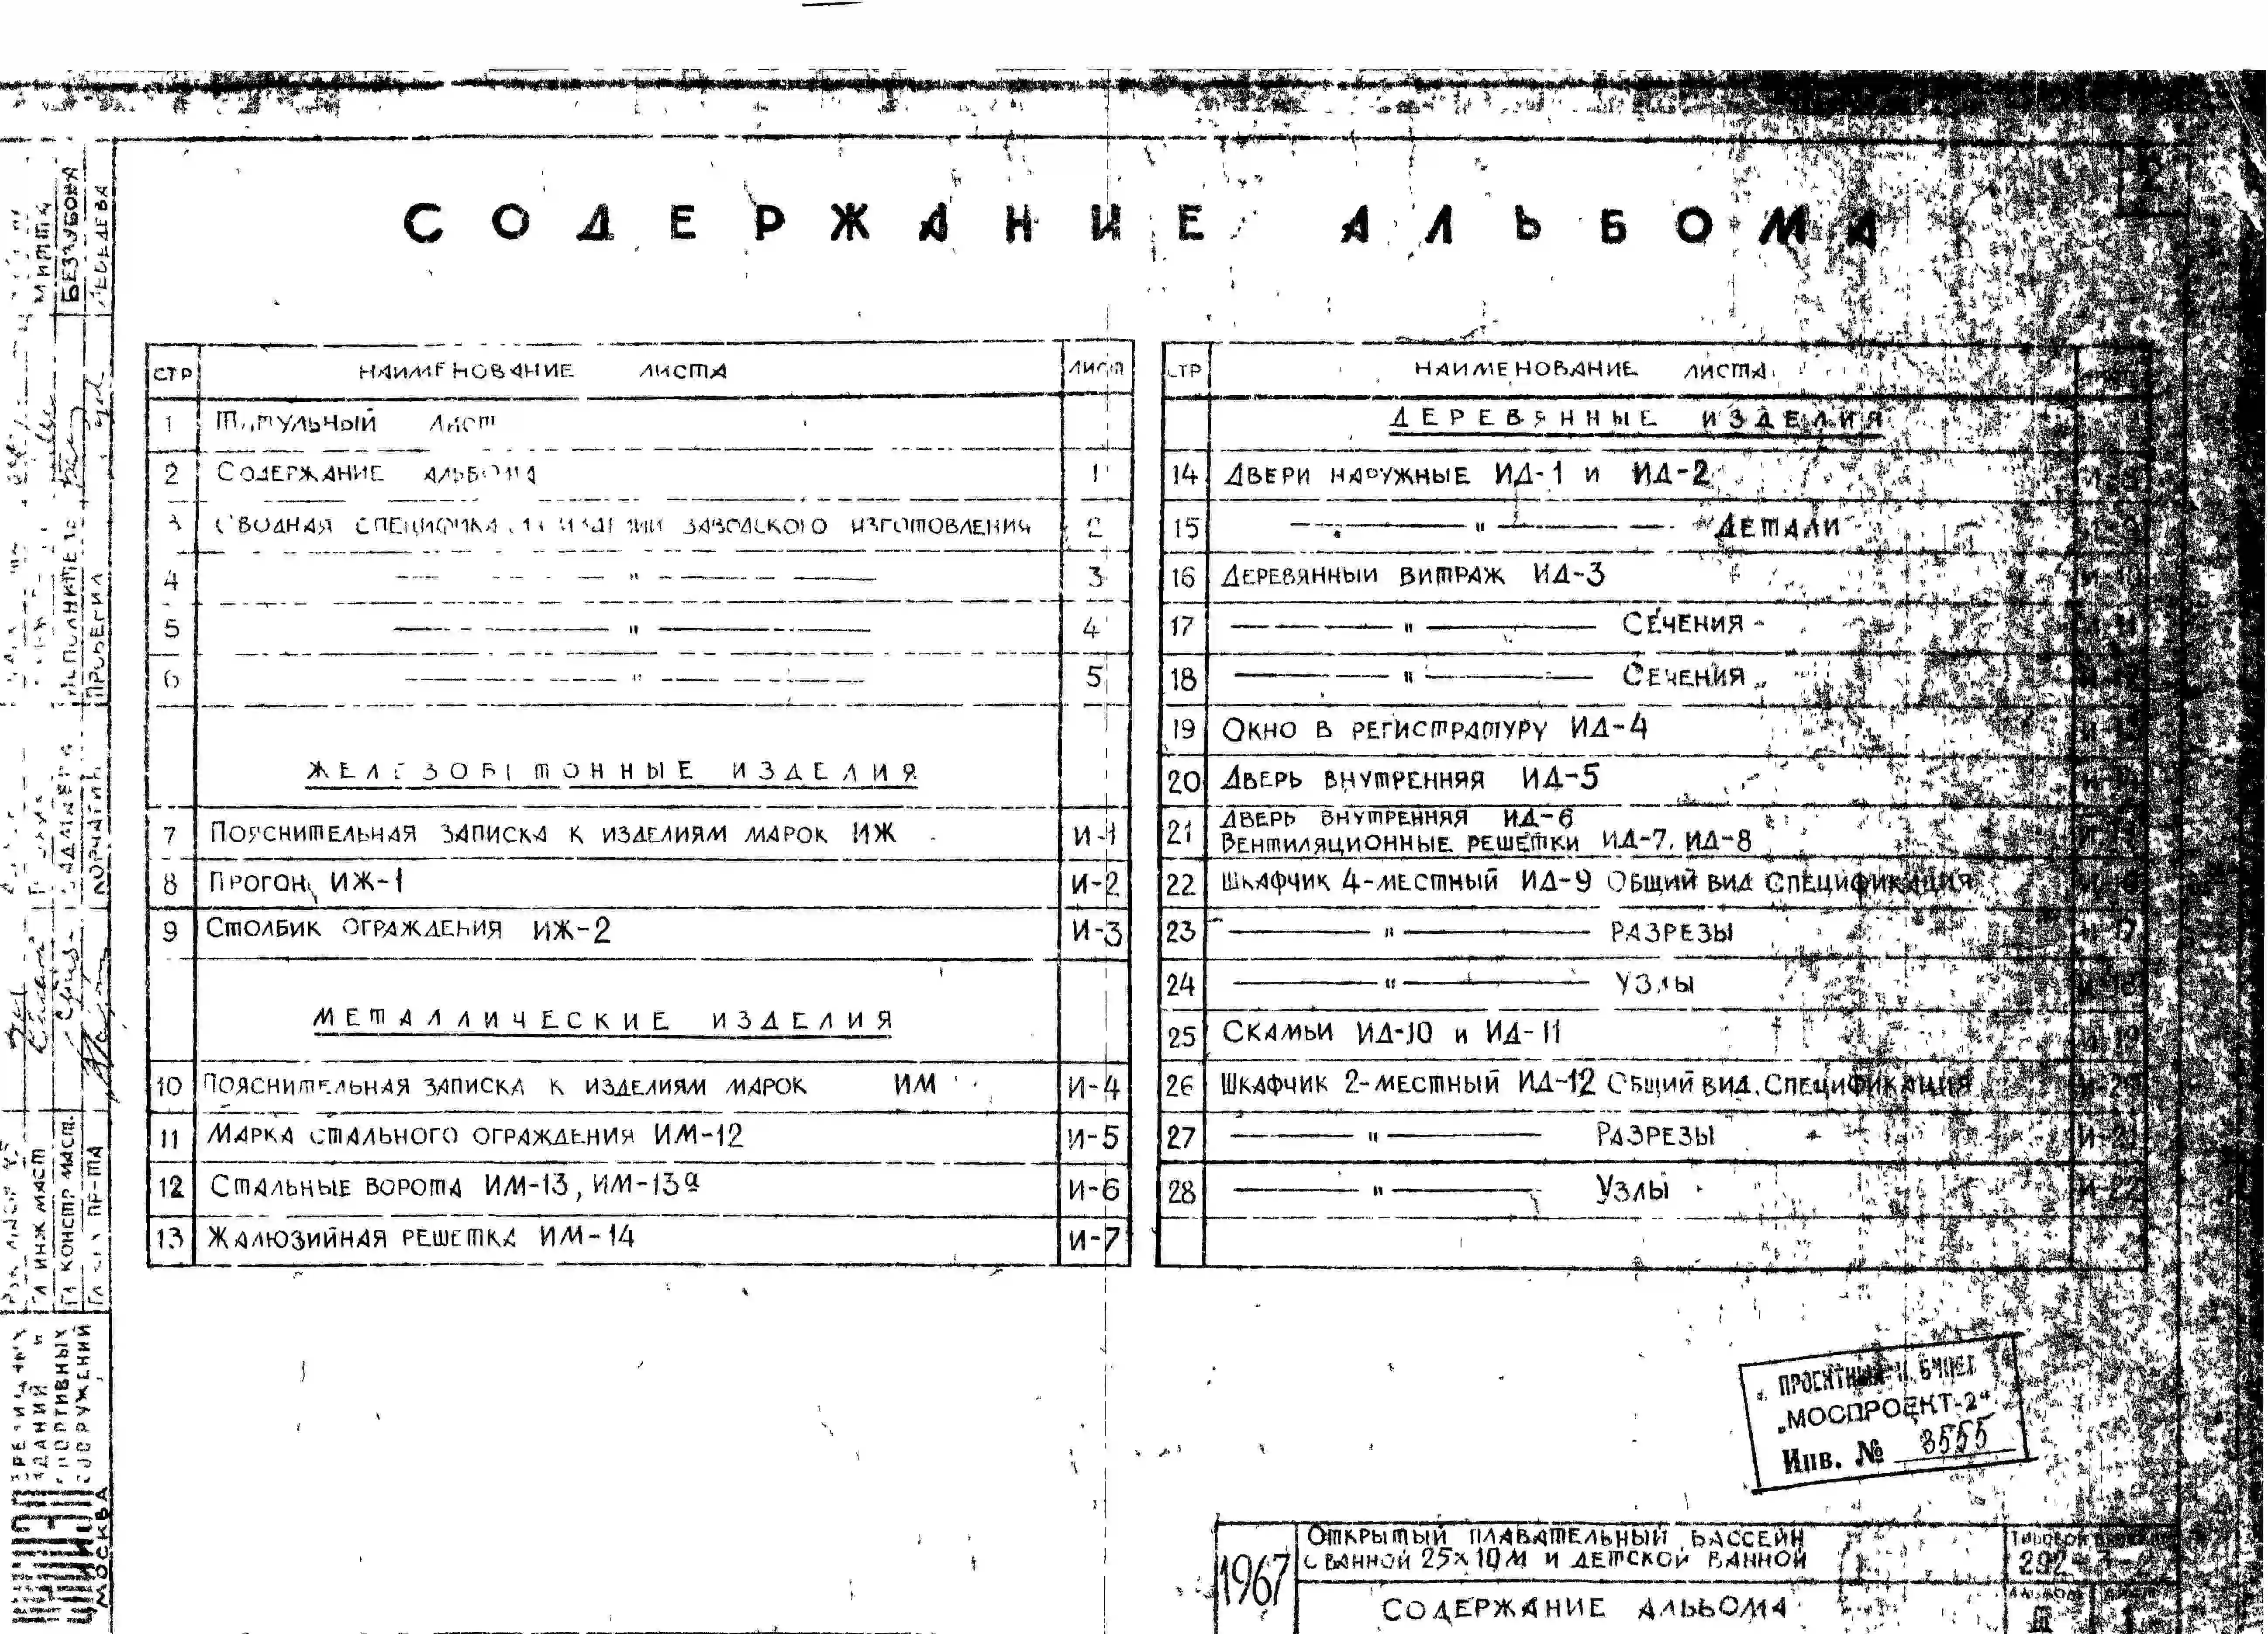 СОДЕРЖАНИЕ АЛЬБОМА
СТР НАИМЕНОВАНИЕ ЛИСТА ЛИСТ
1 Титульный лист
2 Содержание альбома 1
3 Сводная изделий заводского изготовления 2
4 — " — 3
5 — " — 4
6 — " — 5
ЖЕЛЕЗОБЕТОННЫЕ ИЗДЕЛИЯ
7 Пояснительная записка к изделиям марок ИЖ И-1
8 Прогон ИЖ-1 И-2
9 Столбик ограждения ИЖ-2 И-3
МЕТАЛЛИЧЕСКИЕ ИЗДЕЛИЯ
10 Пояснительная записка к изделиям марок ИМ И-4
11 Марка стального ограждения ИМ-12 И-5
12 Стальные ворота ИМ-13, ИМ-13а И-6
13 Жалюзийная решетка ИМ-14 И-7
СТР НАИМЕНОВАНИЕ ЛИСТА
ДЕРЕВЯННЫЕ ИЗДЕЛИЯ
14 Двери наружные ИД-1 и ИД-2
15 — " — Детали
16 Деревянный витраж ИД-3
17 — " — Сечения
18 — " — Сечения
19 Окно в регистратуру ИД-4
20 Дверь внутренняя ИД-5
21 Дверь внутренняя ИД-6
Вентиляционные решетки ИД-7, ИД-8
22 Шкафчик 4-местный ИД-9 Общий вид Спецификация
23 — " — Разрезы
24 — " — Узлы
25 Скамьи ИД-10 и ИД-11 И-19
26 Шкафчик 2-местный ИД-12 Общий вид. Спецификация
27 — " — Разрезы И-21
28 — " — Узлы И-22
„МОСПРОЕКТ-2"
Инв. № 3555
1967
Открытый плавательный бассейн
с ванной 25х10м и детской ванной
СОДЕРЖАНИЕ АЛЬБОМА
МИТТА
БЕЗЗУБОВА
ЛЕБЕДЕВА
ПРОВЕРИЛ
ГЛ ИНЖ МАСТ
ГЛ КОНСТР МАСТ.
ЗДАНИЙ И
СПОРТИВНЫХ
СООРУЖЕНИЙ
МОСКВА